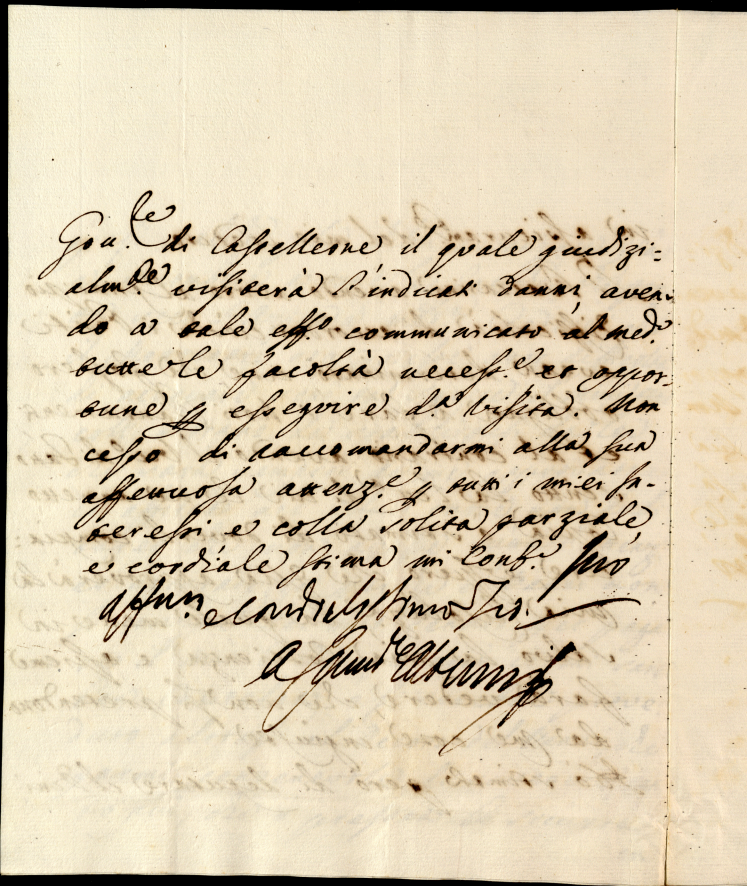 Gou.re di Castelleone il quale giudizi=
alm.te visiterà l'indicati danni, aven=
do a tale eff.o communicato al med.o
tutte le facoltà necess.e et oppor=
tune p esseguire d.a visita. Non
cesso di raccomandarmi alla sua
affettuosa attenz.e p tutti i miei in=
teressi e colla solita parziale,
e cordiale stima mi Conf.o Suo
Aff.mo e
A